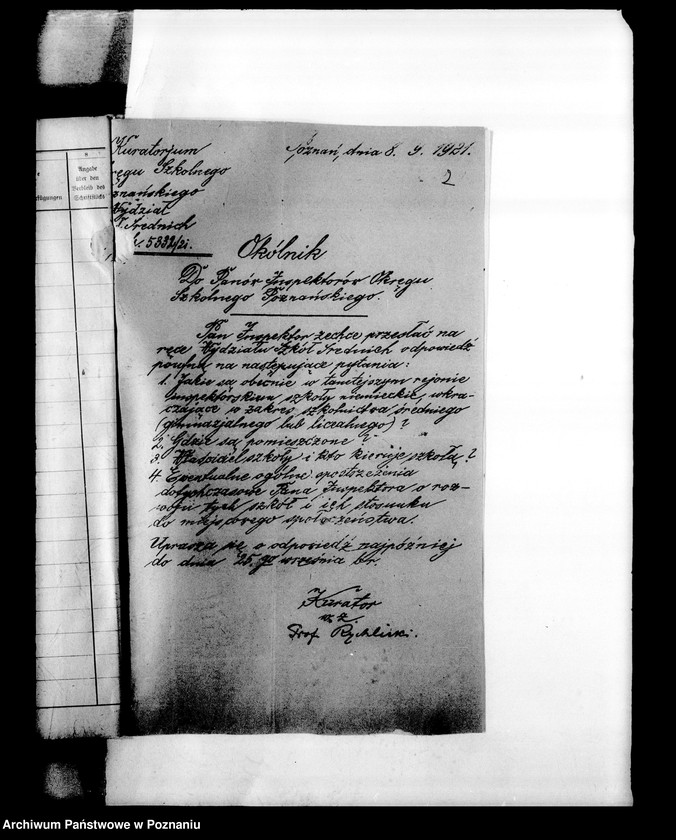 8
Angabe
über den
Verbleib des
Schriftstücks
fügungen
Kuratorjum
ręgu Szkolnego
znańskiego
Wydział
Średnich
5332/21.
Poznań, dnia 8. 9. 1921.
2
Okólnik
Do Panów Inspektorów Okręgu
Szkolnego Poznańskiego.
Pan Inspektor zechce przesłać na
ręce Wydziału Szkół Średnich odpowiedź
poufną na następujące pytania:
1. Jakie są obecnie w tamtejszym rejonie
inspektorskim szkoły niemieckie, wkra-
czające w zakres szkolnictwa średniego
(gimnazjalnego lub licealnego)?
2. Gdzie są pomieszczone?
3. Właściciel szkoły i kto kieruje szkołą?
4. Ewentualne ogólne spostrzeżenia
dotychczasowe Pana Inspektora o roz-
woju tych szkół i ich stosunku
do miejscowego społeczeństwa.
Uprasza się o odpowiedź najpóźniej
do dnia 25. go września br.
Kurator
w z.
Prof. Rychliński.
Archiwum Państwowe w Poznaniu